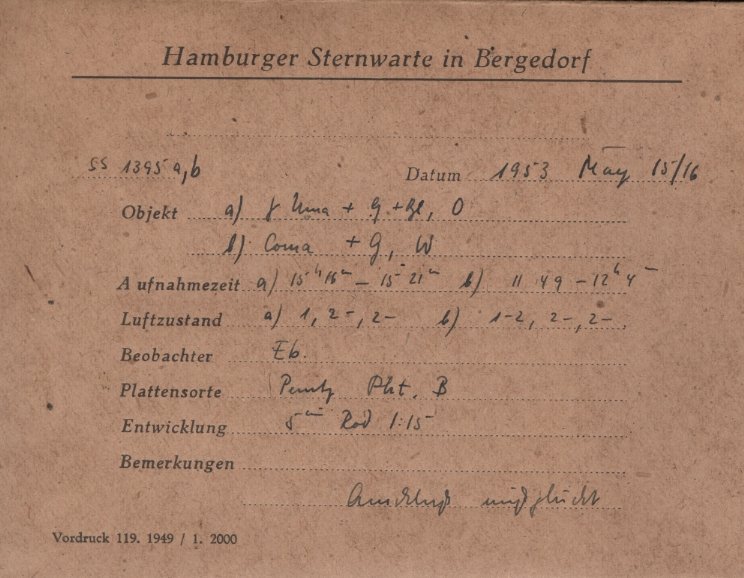 Hamburger Sternwarte in Bergedorf
SS 1395 a,b Datum 1953 May 15/16
Objekt a) γ Uma + G + Gl, O
b) Coma + G, W
Aufnahmezeit a) 15ʰ 16ᵐ – 15 21ᵐ b) 11 49 – 12ʰ 4ᵐ
Luftzustand a) 1, 2-, 2- b) 1-2, 2-, 2-,
Beobachter Eb.
Plattensorte Perutz Pht. B
Entwicklung 5ᵐ Rod 1:15
Bemerkungen
Anschluß mißglückt
Vordruck 119. 1949 / 1. 2000